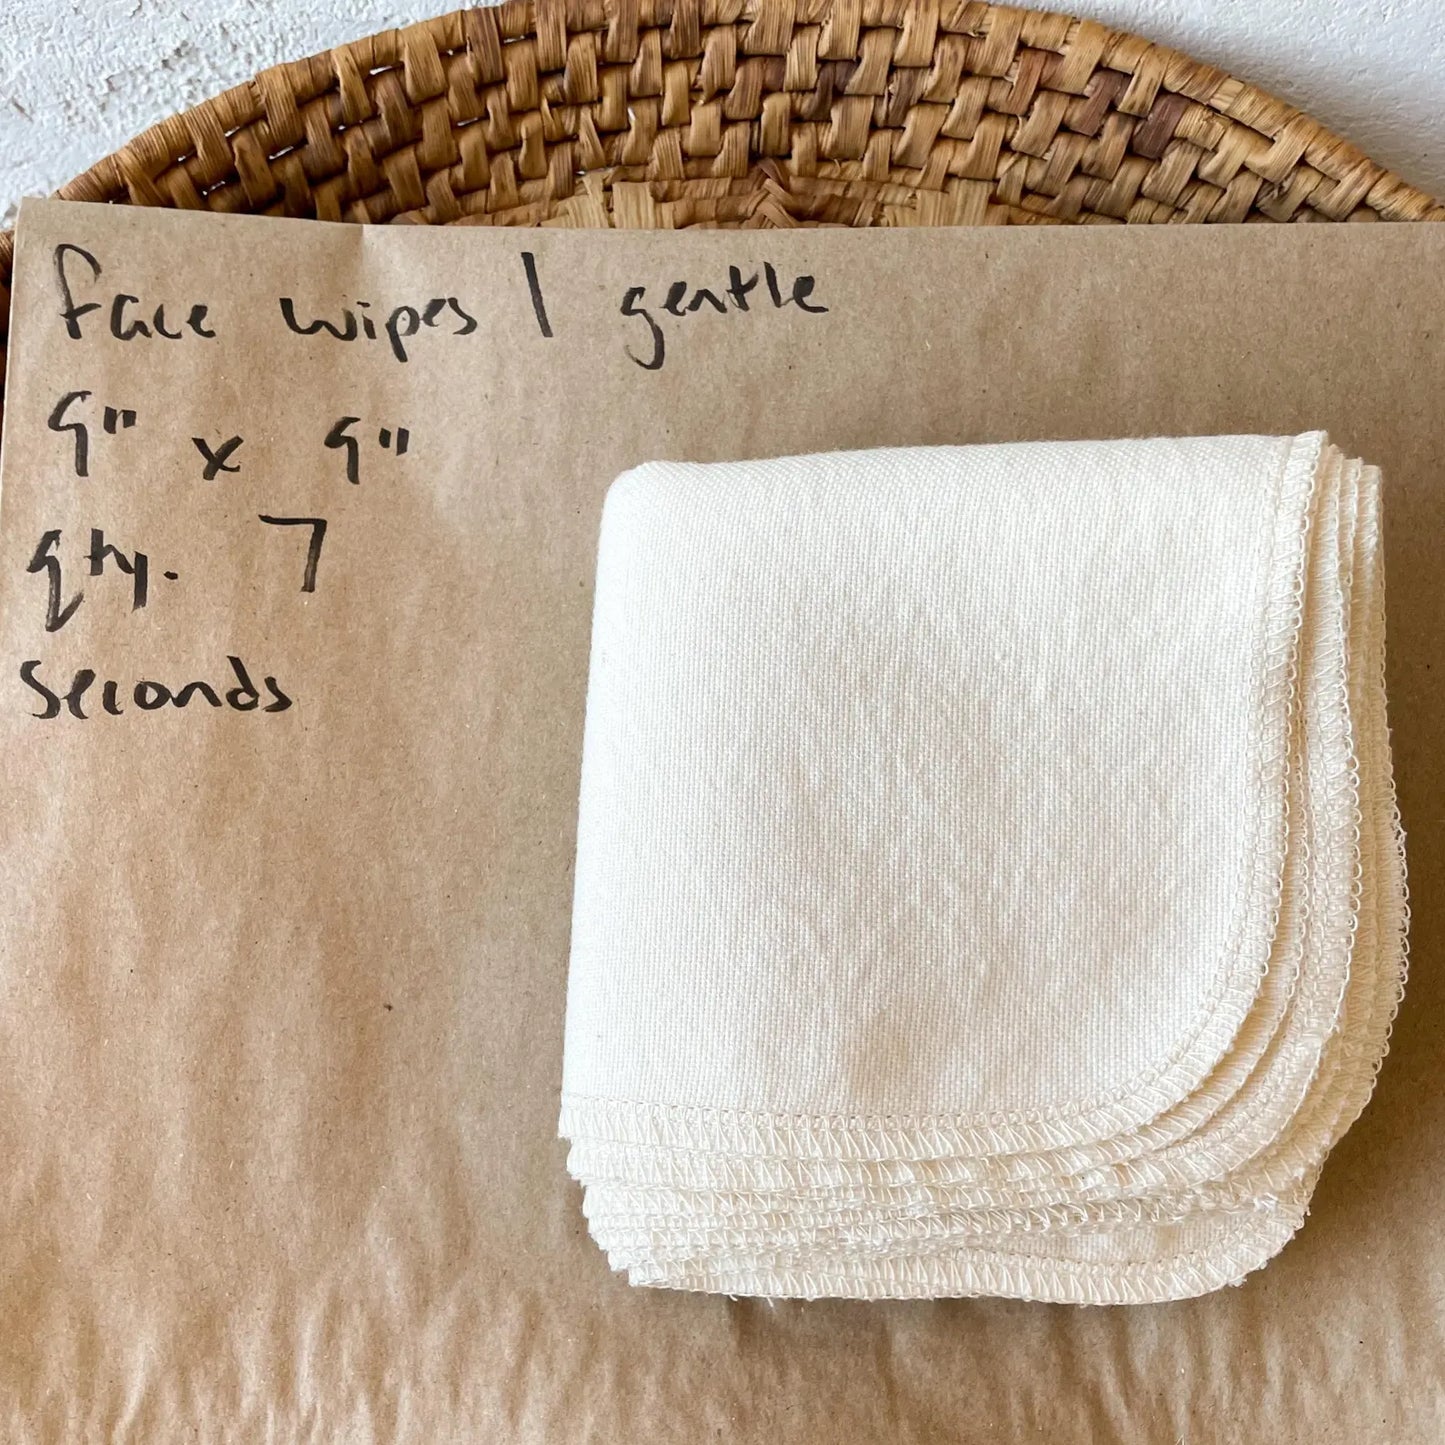 face wipes | gentle
9" x 9"
qty. 7
Seconds